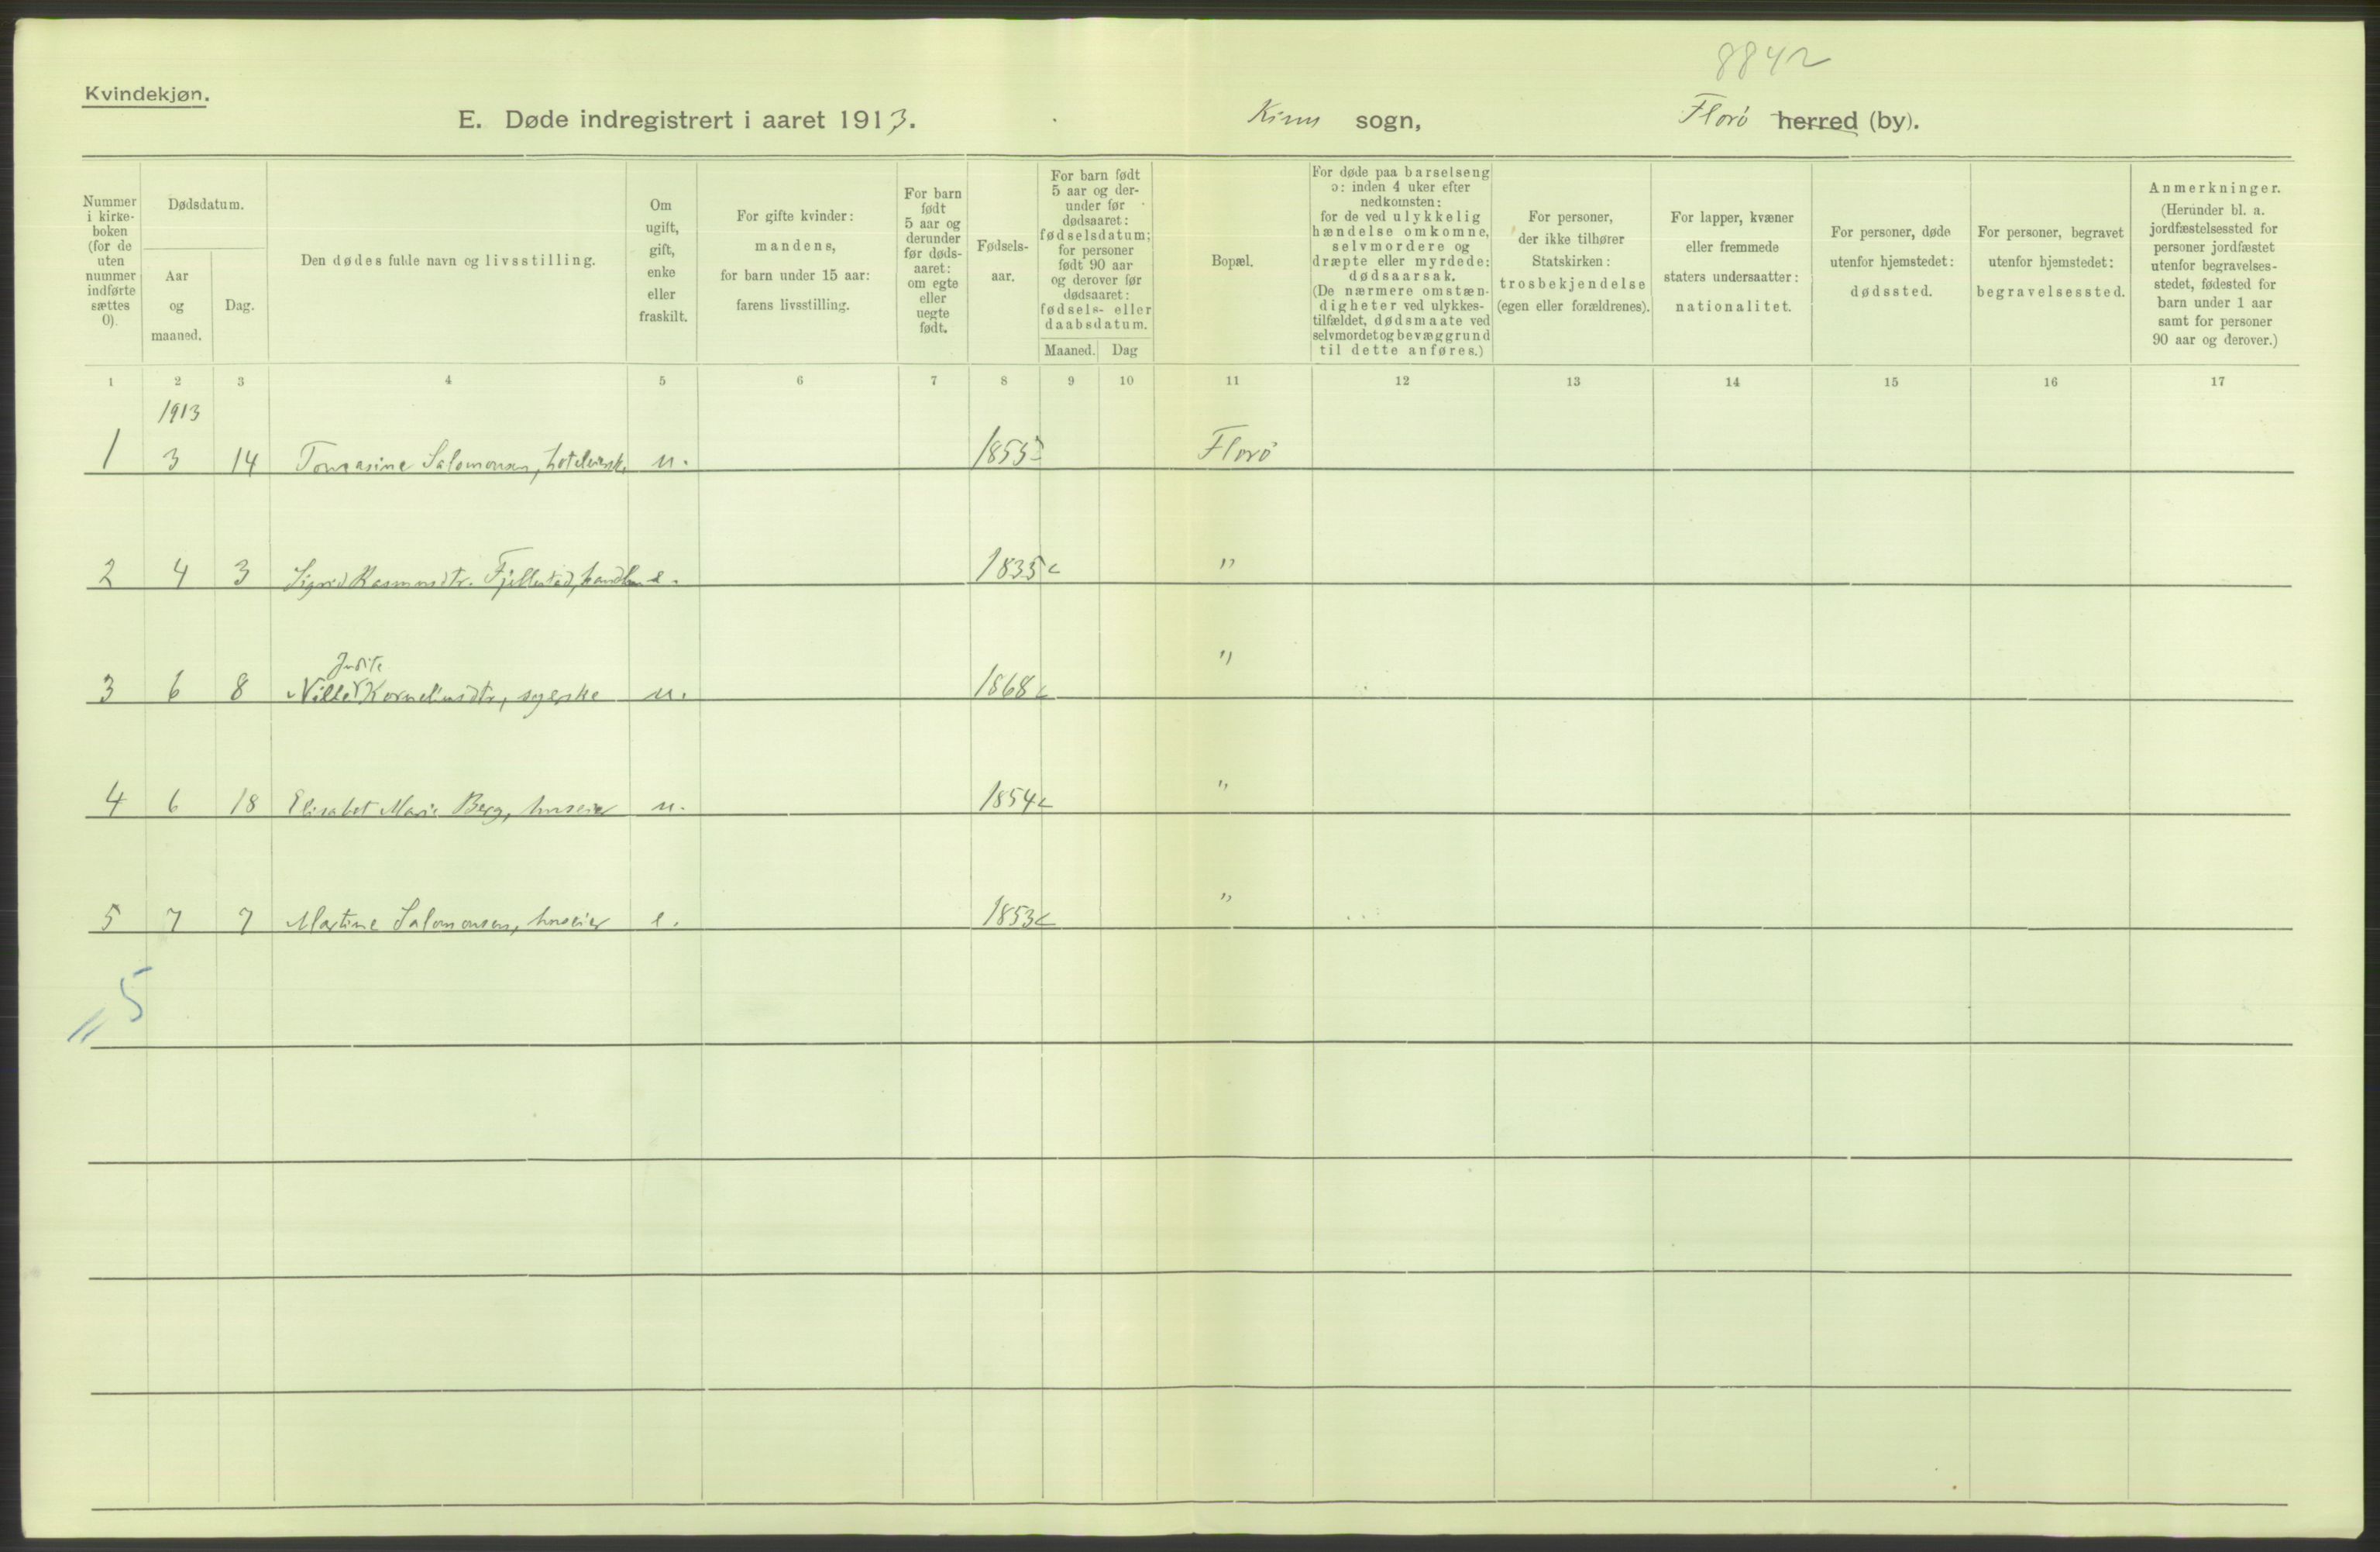 8842
Kvindekjøn.
E. Døde indregistrert i aaret 1913. Kinn sogn, Florø herred (by).
Nummer i kirkeboken (for de uten nummer indførte sættes 0).
Dødsdatum.
Aar og maaned.
Dag.
Den dødes fulde navn og livsstilling.
Om ugift, gift, enke eller fraskilt.
For gifte kvinder: mandens, for barn under 15 aar: farens livsstilling.
For barn født 5 aar og derunder før dødsaaret: om egte eller uegte født.
Fødselsaar.
For barn født 5 aar og derunder før dødsaaret: fødselsdatum; for personer født 90 aar og derover før dødsaaret: fødsels- eller daabsdatum.
Maaned. Dag
Bopæl.
For døde paa barselseng ɔ: inden 4 uker efter nedkomsten: for de ved ulykkelig hændelse omkomne, selvmordere og dræpte eller myrdede: dødsaarsak. (De nærmere omstændigheter ved ulykkestilfældet, dødsmaate ved selvmordet og bevæggrund til dette anføres.)
For personer, der ikke tilhører Statskirken: trosbekjendelse (egen eller forældrenes).
For lapper, kvæner eller fremmede staters undersaatter: nationalitet.
For personer, døde utenfor hjemstedet: dødssted.
For personer, begravet utenfor hjemstedet: begravelsessted.
Anmerkninger. (Herunder bl. a. jordfæstelsessted for personer jordfæstet utenfor begravelsesstedet, fødested for barn under 1 aar samt for personer 90 aar og derover.)
1 2 3 4 5 6 7 8 9 10 11 12 13 14 15 16 17
1913
1 3 14 Tomasine Salomonsen, u. 1855 Florø
2 4 3 Sigrid Rasmusdtr. Fjellestad, e. 1835 "
Judite
3 6 8 Korneliusdtr, syerske u. 1868 "
4 6 18 Elisabet Marie Berg, huseier u. 1854 "
5 7 7 Martine Salomonsen, huseier e. 1853 "
5